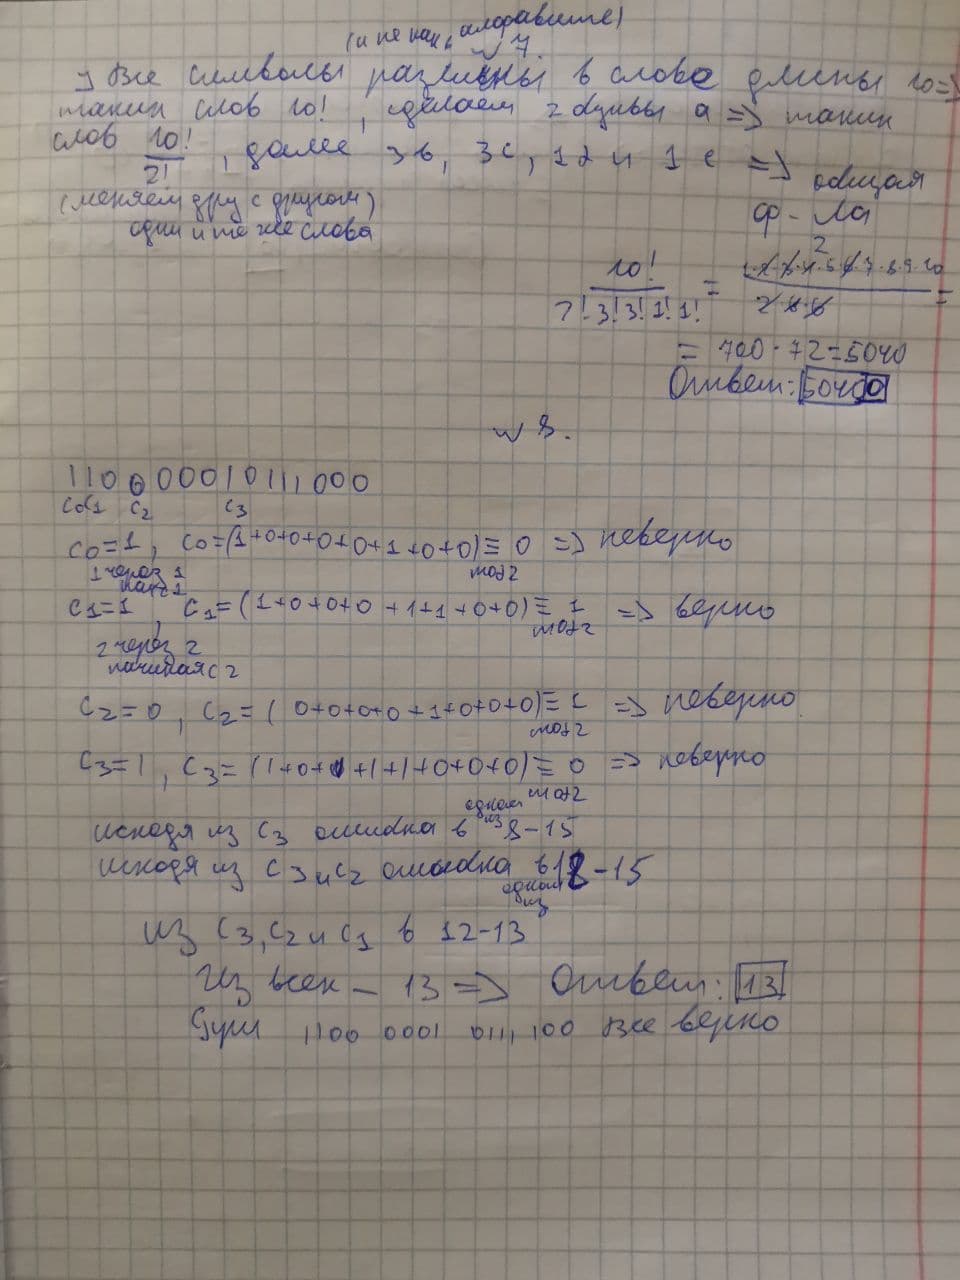 (и не как в алфавите)
№ 7.
1) Все символы различны в слове длины 10 =>
таких слов 10! , сделаем 2 буквы a => таких
слов 10!/2! , далее 3b, 3c, 1d и 1 e => общая
ф-ла
(меняем друг с другом)
одни и те же слова
10!/2!·3!3!1!1! = 1·2·3·4·5·6·7·8·9·10/2·6·6 =
= 700·72=5040
Ответ: 50400
№ 8.
110000010111000
c0c1 c2 c3
c0=1, c0=(1+0+0+0+0+1+0+0)≡ 0 => неверно
mod2
1 через 1
нач с 1
c1=1, c1=(1+0+0+0+1+1+0+0)≡ 1 => верно
mod2
2 через 2
начиная с 2
c2=0, c2=(0+0+0+0+1+0+0+0)≡ 1 => неверно
mod2
c3=1, c3=(1+0+1+1+1+0+0+0)≡ 0 => неверно
mod2
исходя из c3 ошибка в одном из 8-15
исходя из c3 и c2 ошибка в одном из 12-15
из c3, c2 и c1 в 12-13
Из всех - 13 => Ответ: 13
1100 0001 0111 100 все верно